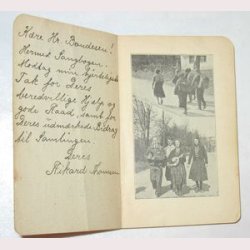 Kære Hr. Boudesen!
Hermed Sangbogen.
Modtag min hjerteligste
Tak for Deres
beredvillige Hjælp og
gode Raad, samt for
Deres udmærkede Bidrag
til Samlingen
Deres
Rikard